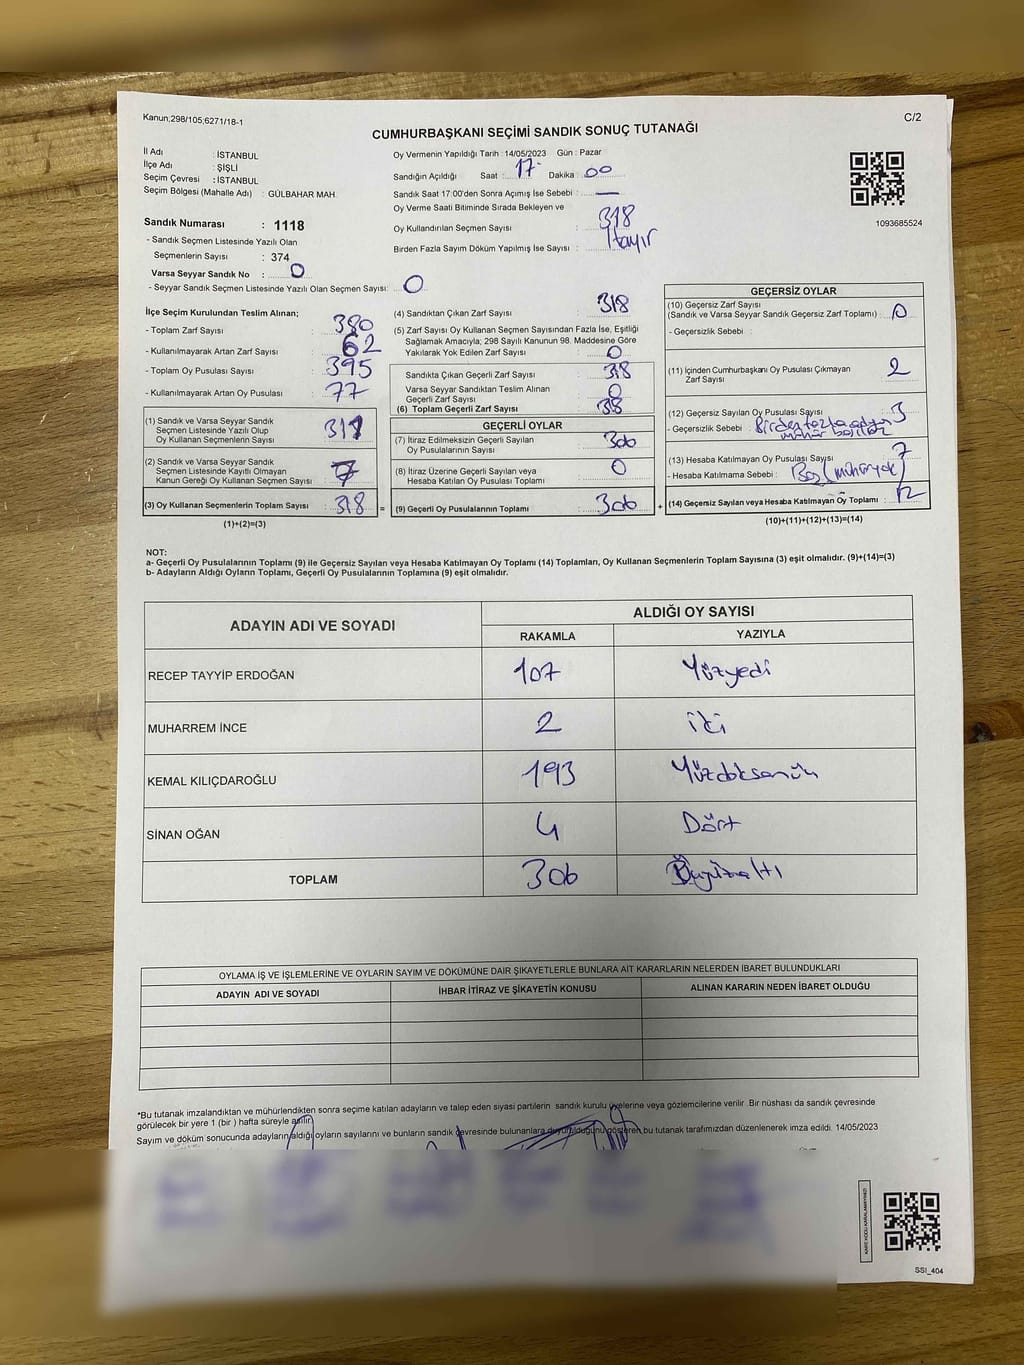 Kanun;298/105;6271/18-1
C/2
CUMHURBAŞKANI SEÇİMİ SANDIK SONUÇ TUTANAĞI
İl Adı : İSTANBUL
İlçe Adı : ŞİŞLİ
Seçim Çevresi : İSTANBUL
Seçim Bölgesi (Mahalle Adı) : GÜLBAHAR MAH.
Sandık Numarası : 1118
- Sandık Seçmen Listesinde Yazılı Olan
Seçmenlerin Sayısı : 374
Varsa Seyyar Sandık No : 0
- Seyyar Sandık Seçmen Listesinde Yazılı Olan Seçmen Sayısı: 0
Oy Vermenin Yapıldığı Tarih : 14/05/2023 Gün : Pazar
Sandığın Açıldığı Saat : 17 Dakika : 00
Sandık Saat 17:00'den Sonra Açımış İse Sebebi : —
Oy Verme Saati Bitiminde Sırada Bekleyen ve
Oy Kullandırılan Seçmen Sayısı : 318
Birden Fazla Sayım Döküm Yapılmış İse Sayısı : Hayır
1093685524
İlçe Seçim Kurulundan Teslim Alınan;
- Toplam Zarf Sayısı : 380
- Kullanılmayarak Artan Zarf Sayısı : 62
- Toplam Oy Pusulası Sayısı : 395
- Kullanılmayarak Artan Oy Pusulası : 77
(1) Sandık ve Varsa Seyyar Sandık
Seçmen Listesinde Yazılı Olup
Oy Kullanan Seçmenlerin Sayısı : 311
(2) Sandık ve Varsa Seyyar Sandık
Seçmen Listesinde Kayıtlı Olmayan
Kanun Gereği Oy Kullanan Seçmen Sayısı : 7
(3) Oy Kullanan Seçmenlerin Toplam Sayısı : 318
(1)+(2)=(3)
(4) Sandıktan Çıkan Zarf Sayısı : 318
(5) Zarf Sayısı Oy Kullanan Seçmen Sayısından Fazla İse, Eşitliği
Sağlamak Amacıyla; 298 Sayılı Kanunun 98. Maddesine Göre
Yakılarak Yok Edilen Zarf Sayısı : 0
Sandıkta Çıkan Geçerli Zarf Sayısı : 318
Varsa Seyyar Sandıktan Teslim Alınan
Geçerli Zarf Sayısı : 0
(6) Toplam Geçerli Zarf Sayısı : 318
GEÇERLİ OYLAR
(7) İtiraz Edilmeksizin Geçerli Sayılan
Oy Pusulalarının Sayısı : 306
(8) İtiraz Üzerine Geçerli Sayılan veya
Hesaba Katılan Oy Pusulası Toplamı : 0
= (9) Geçerli Oy Pusulalarının Toplamı : 306
GEÇERSİZ OYLAR
(10) Geçersiz Zarf Sayısı
(Sandık ve Varsa Seyyar Sandık Geçersiz Zarf Toplamı) : 0
- Geçersizlik Sebebi :
(11) İçinden Cumhurbaşkanı Oy Pusulası Çıkmayan
Zarf Sayısı : 2
(12) Geçersiz Sayılan Oy Pusulası Sayısı : 3
- Geçersizlik Sebebi : Birden fazla adaya
mühür
(13) Hesaba Katılmayan Oy Pusulası Sayısı : 7
- Hesaba Katılmama Sebebi : Boş (mühür yok)
+ (14) Geçersiz Sayılan veya Hesaba Katılmayan Oy Toplamı : 12
(10)+(11)+(12)+(13)=(14)
NOT:
a- Geçerli Oy Pusulalarının Toplamı (9) ile Geçersiz Sayılan veya Hesaba Katılmayan Oy Toplamı (14) Toplamları, Oy Kullanan Seçmenlerin Toplam Sayısına (3) eşit olmalıdır. (9)+(14)=(3)
b- Adayların Aldığı Oyların Toplamı, Geçerli Oy Pusulalarının Toplamına (9) eşit olmalıdır.
ADAYIN ADI VE SOYADI ALDIĞI OY SAYISI
RAKAMLA YAZIYLA
RECEP TAYYİP ERDOĞAN 107 Yüzyedi
MUHARREM İNCE 2 iki
KEMAL KILIÇDAROĞLU 193 Yüzdoksanüç
SİNAN OĞAN 4 Dört
TOPLAM 306 Üçyüzaltı
OYLAMA İŞ VE İŞLEMLERİNE VE OYLARIN SAYIM VE DÖKÜMÜNE DAİR ŞİKAYETLERLE BUNLARA AİT KARARLARIN NELERDEN İBARET BULUNDUKLARI
ADAYIN ADI VE SOYADI İHBAR İTİRAZ VE ŞİKAYETİN KONUSU ALINAN KARARIN NEDEN İBARET OLDUĞU
*Bu tutanak imzalandıktan ve mühürlendikten sonra seçime katılan adayların ve talep eden siyasi partilerin sandık kurulu üyelerine veya gözlemcilerine verilir .Bir nüshası da sandık çevresinde
görülecek bir yere 1 (bir ) hafta süreyle asılır.
Sayım ve döküm sonucunda adayların aldığı oyların sayılarını ve bunların sandık çevresinde bulunanlara duyurulduğunu gösteren bu tutanak tarafımızdan düzenlenerek imza edildi. 14/05/2023
KARE KODU KARALAMAYINIZ!
SSI_404